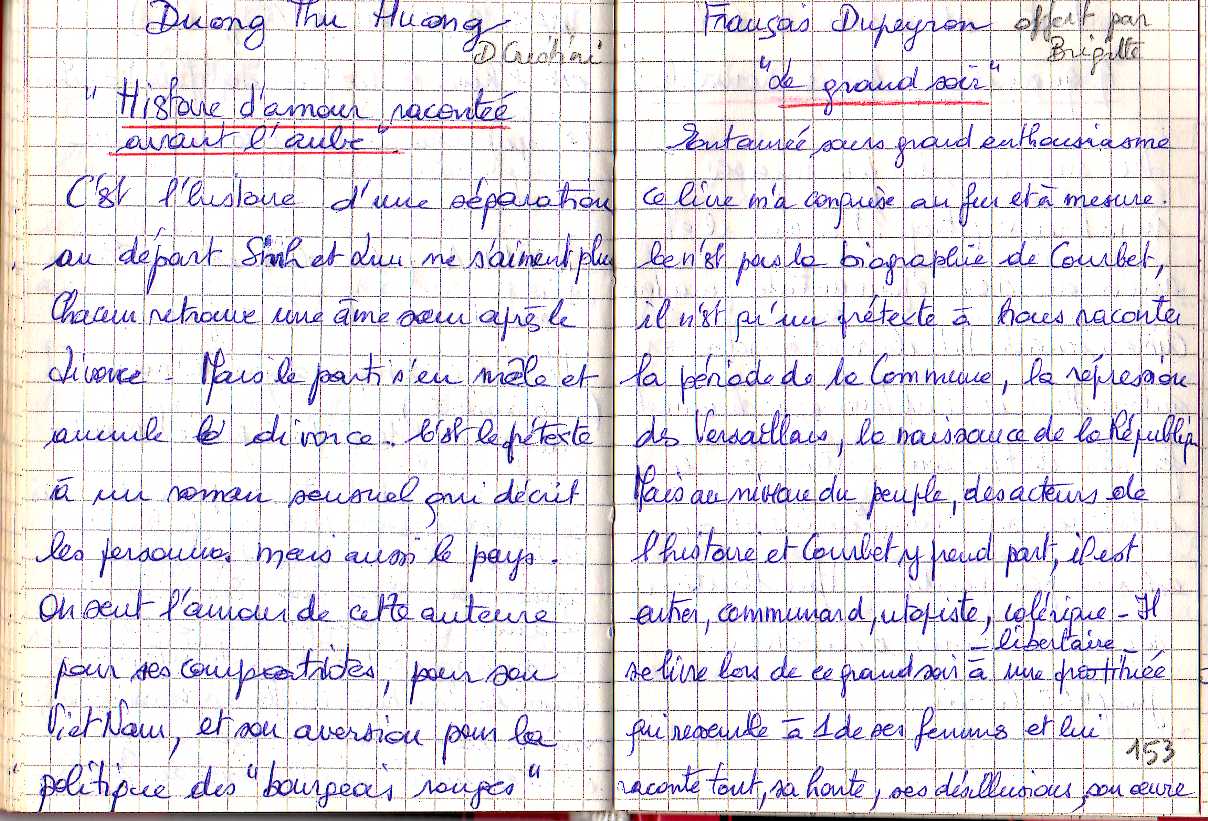 Duong Thu Huong
D Cristini
" Histoire d'amour racontée
avant l'aube"
C'est l'histoire d'une séparation
au départ Sinh et Luu ne s'aiment plus
Chacun retrouve une âme sœur après le
divorce - Mais le parti s'en mêle et
annule le divorce. C'est le prétexte
à un roman sensuel qui décrit
les personnes mais aussi le pays.
On sent l'amour de cette auteure
pour ses compatriotes, pour son
Viet Nam, et son aversion pour la
politique des "bourgeois rouges"
François Dupeyron offert par
Brigitte
"Le grand soir"
Entamée sans grand enthousiasme
ce livre m'a conquise au fur et à mesure.
Ce n'est pas la biographie de Courbet,
il n'est qu'un prétexte à nous raconter
la période de la Commune, la répression
des Versaillais, la naissance de la Républiq
Mais au niveau du peuple, des acteurs de
l'histoire et Courbet y prend part, il est
entier, communard, utopiste, colérique - Il
- libertaire -
se livre lors de ce grand soir à une prostituée
qui ressemble à 1 de ses femmes et lui
153
raconte tout, sa honte, ses désillusions, son œuvre